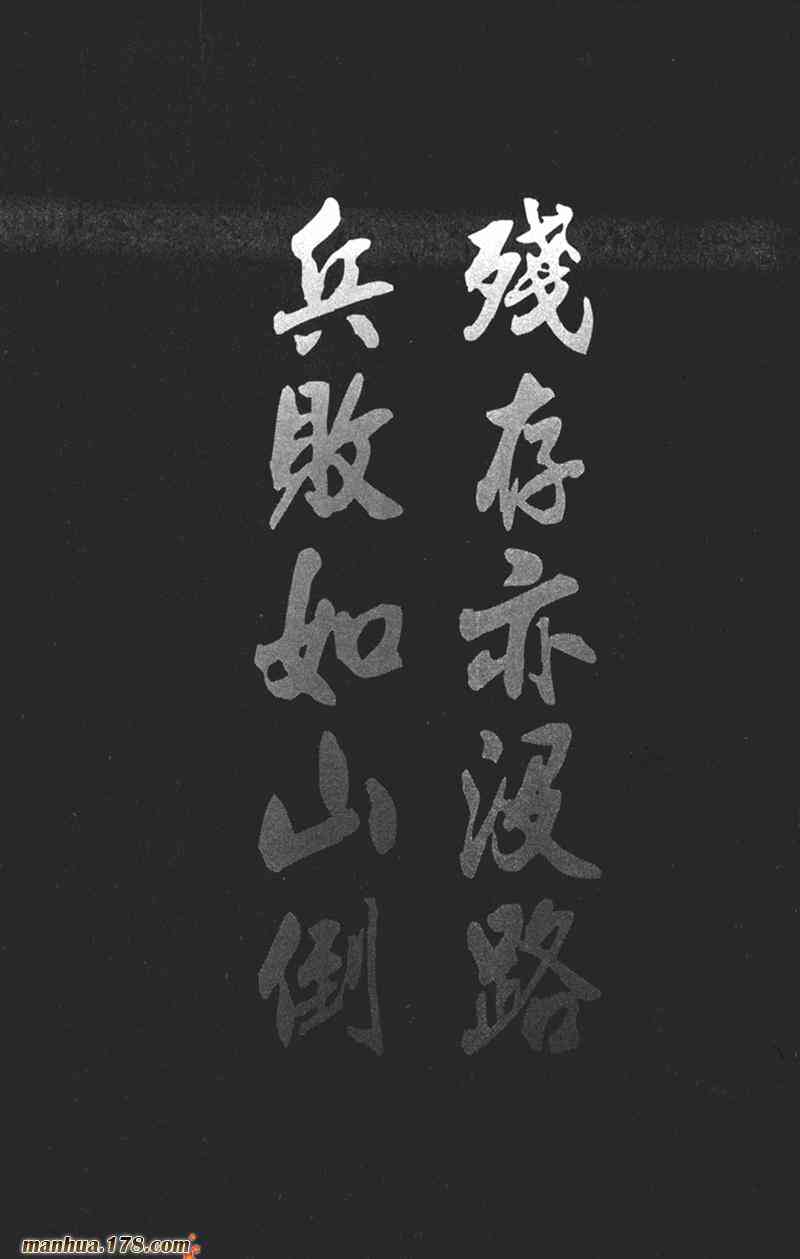 殘存亦没路
兵敗如山倒
manhua.178.com